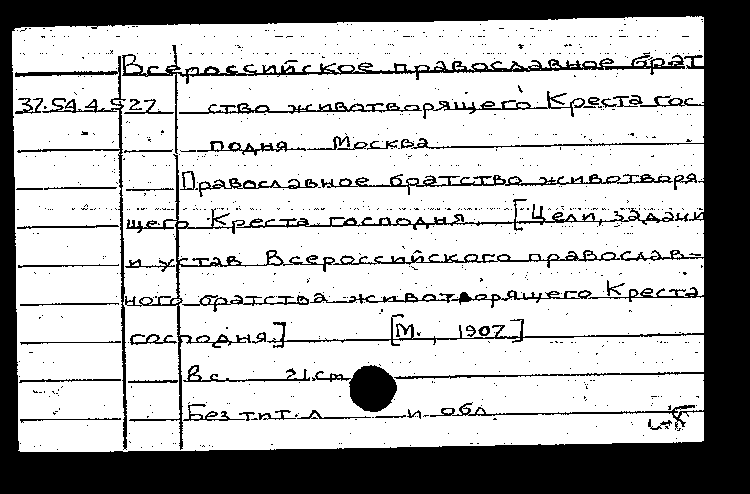 Всероссийское православное брат
37.54.4.527 ство животворящего Креста гос
подня Москва
Православное братство животворя
щего Креста господня. [Цели, задачи
и устав Всероссийского православ-
ного братства животворящего Креста
господня.] [М., 1907]
8 с. 21 cm
Без тит. л и обл.